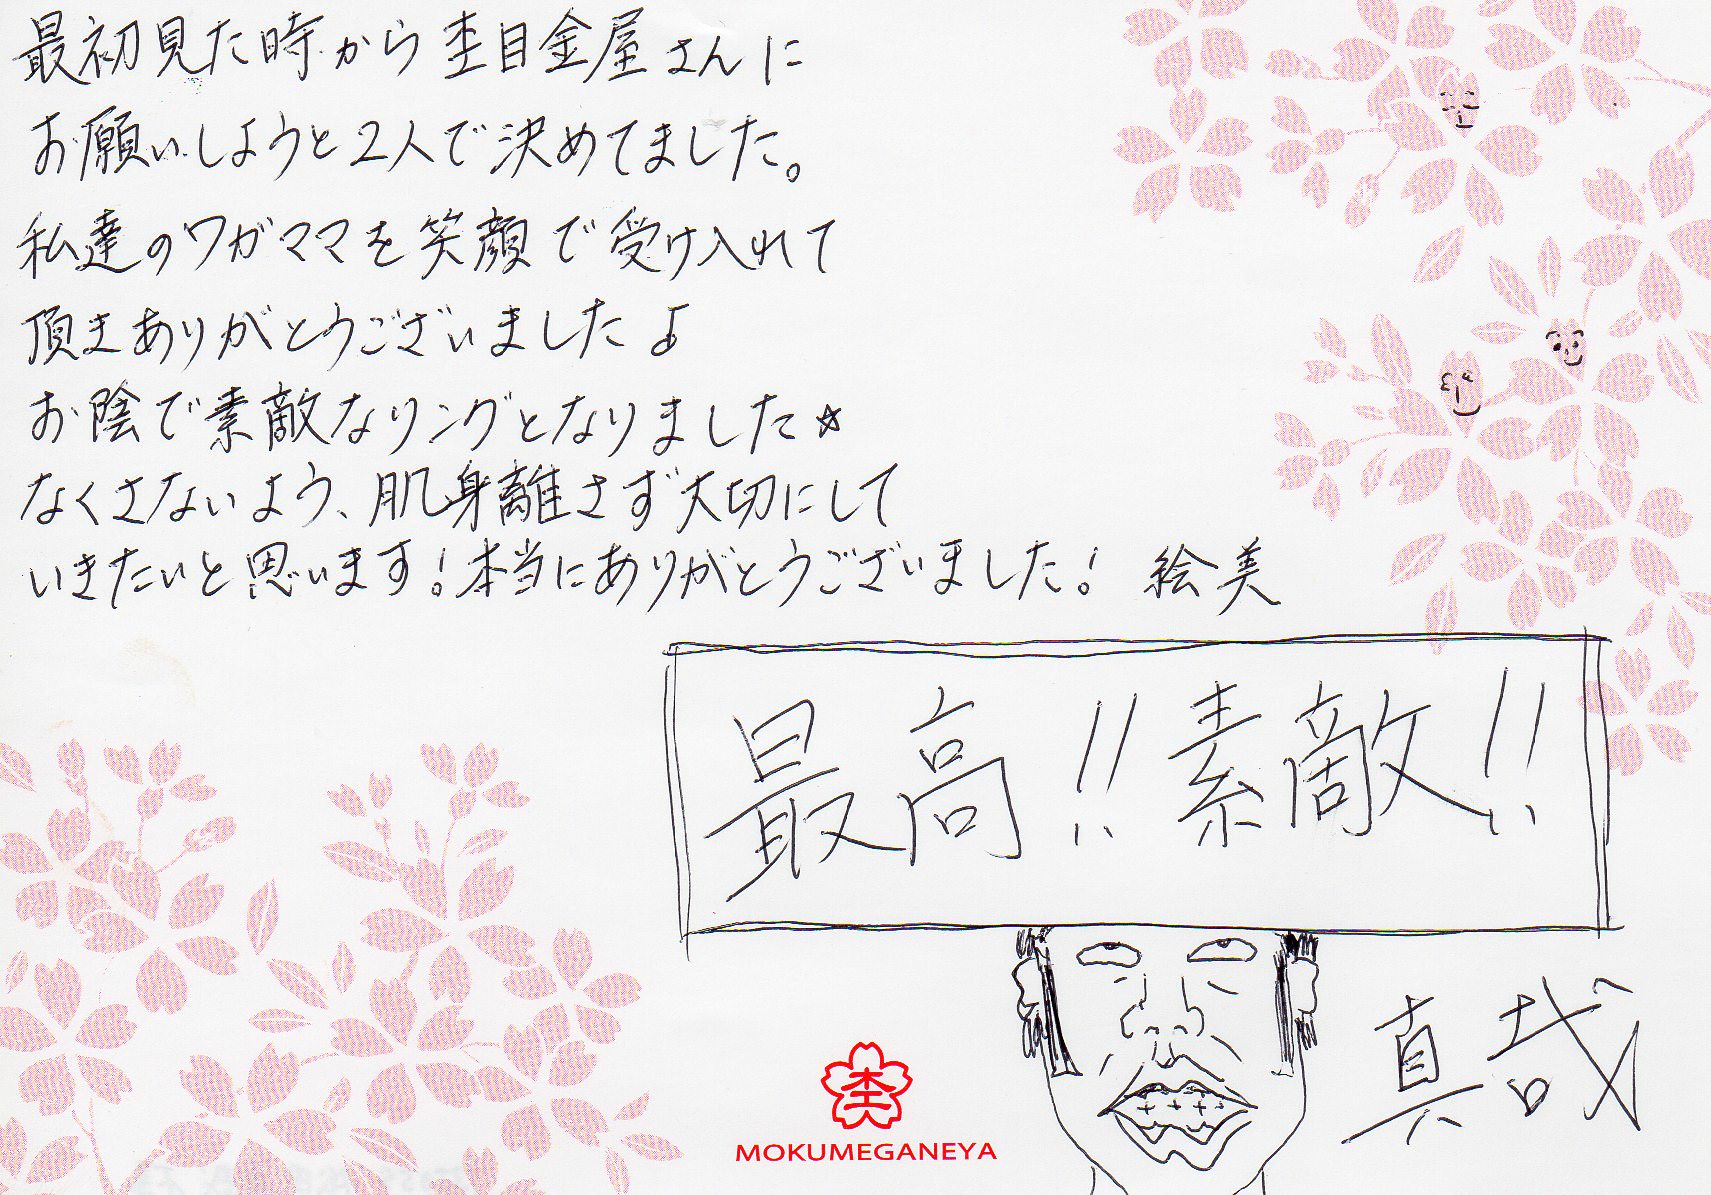 最初見た時から杢目金屋さんに
お願いしようと2人で決めてました。
私達のワガママを笑顔で受け入れて
頂きありがとうございました♪
お陰で素敵なリングとなりました☆
なくさないよう、肌身離さず大切にして
いきたいと思います!本当にありがとうございました! 絵美
最高!!素敵!!
真哉
杢
MOKUMEGANEYA